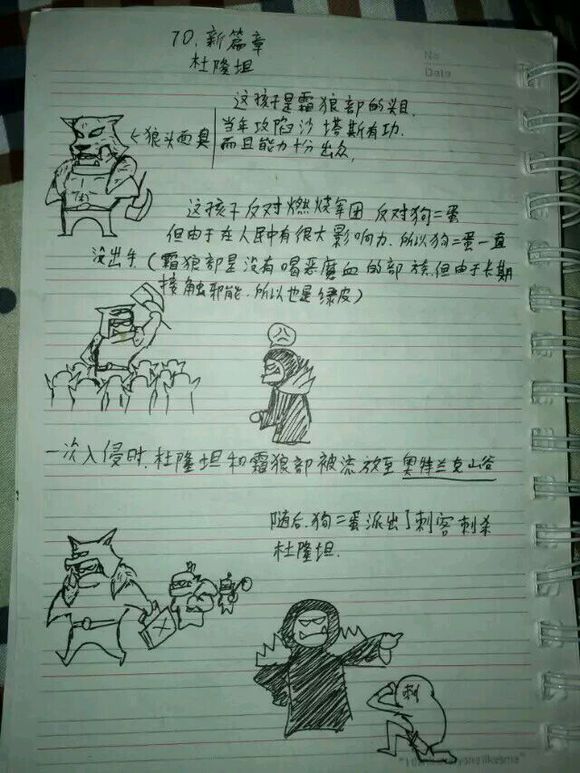 70.新篇章
杜隆坦
No
Date
这孩子是霜狼部的头目.
←狼头面具
当年攻陷沙塔斯有功.
而且能力十分出众,
这孩子反对燃烧军团 反对狗二蛋
但由于在人民中有很大影响力.所以狗二蛋一直
没出手(霜狼部是没有喝恶魔血的部族.但由于长期
接触邪能.所以也是绿皮)
一次入侵时.杜隆坦和霜狼部被流放至奥特兰克山谷
随后.狗二蛋派出了刺客刺杀
杜隆坦.
刺